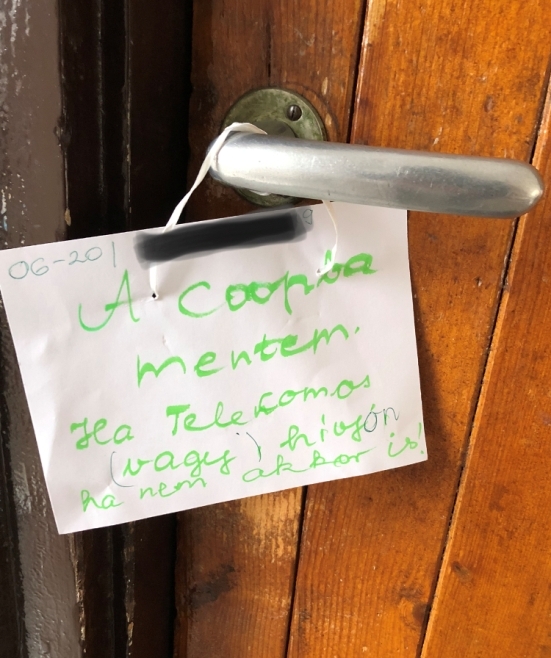 06-20/
A Coopba
mentem.
Ha Telekomos
(vagy) hívjón
ha nem akkor is!